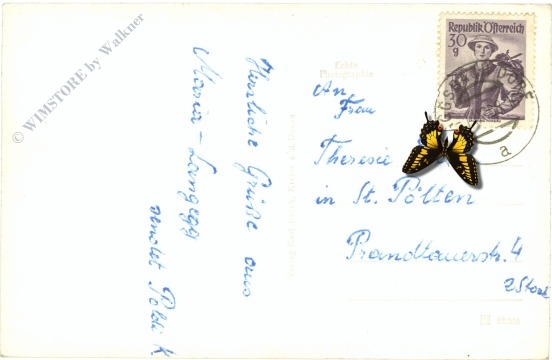 Herzliche Grüße aus
Maria-Langegg
sendet Poldi K.
Echte
Photographie
An
Frau
Theresie
in St. Pölten
Prandtauerstr. 4
2 Stock
Republik Österreich
30
g
a
© WIMSTORE by Walkner